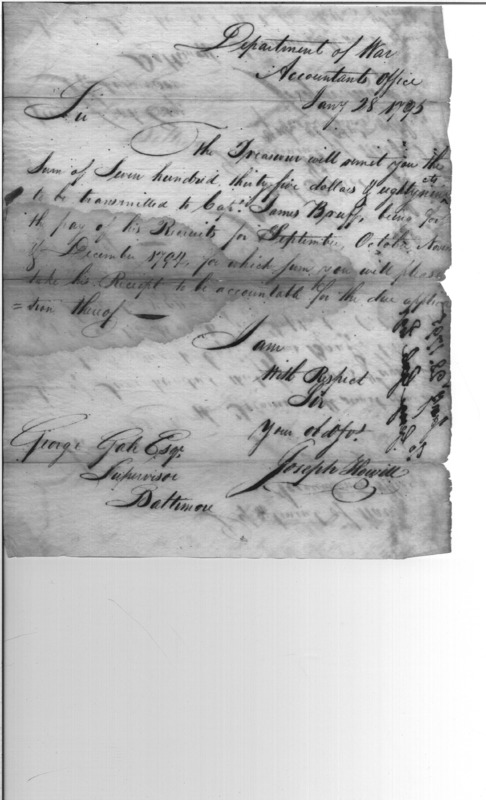 Department of War
Accountants Office
Jany 28 1795
Sir
The Treasurer will remit you the
Sum of Seven hundred, thirty five dollars & eighty nine cts
to be transmitted to Capt. James Bruff, being for
th pay of his Recruits for September, October Novem
& December 1794, for which sum you will please
take his Receipt to be accountable for the due applica
=tion thereof
I am
With Respect
Sir
Your ob. Servt.
Joseph Howell
George Gale Esqr
Supervisor
Baltimore